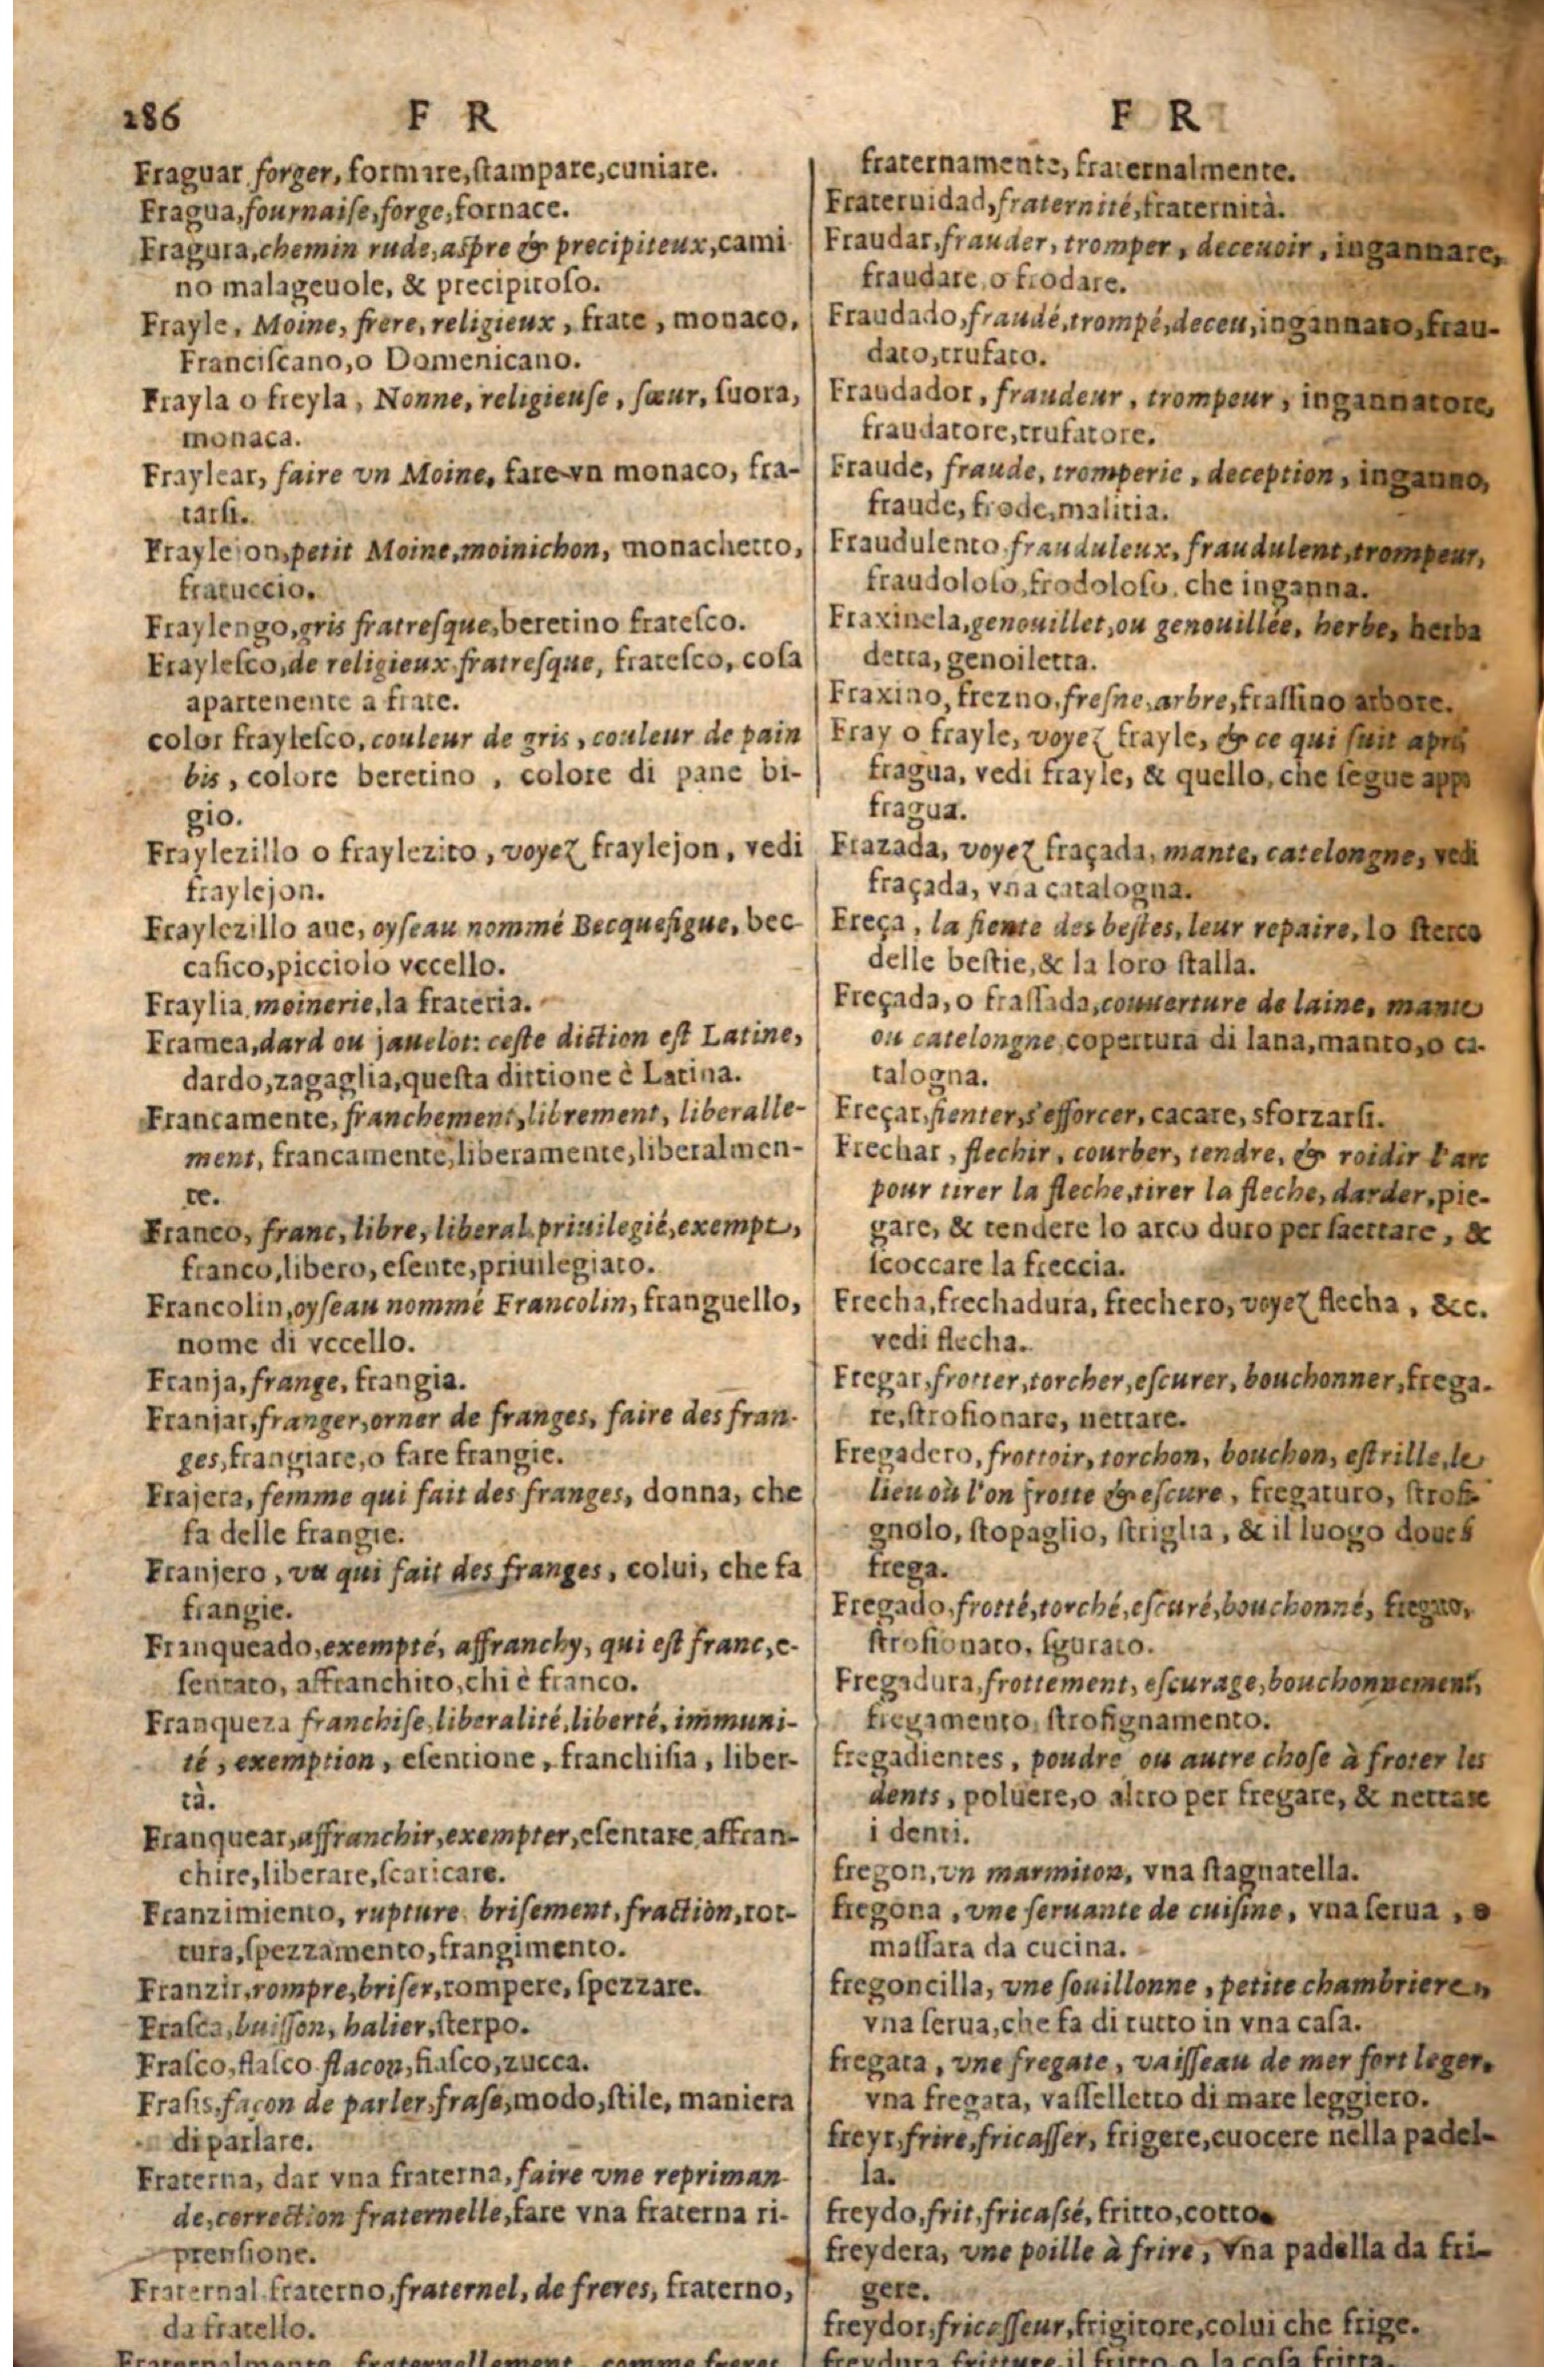 286 F R
Fraguar forger, formare, ſtampare, cuniare.
Fragua, fournaiſe, forge, fornace.
Fragura, chemin rude, aspre & precipiteux, cami
no malageuole, & precipitoſo.
Frayle, Moine, frere, religieux, frate, monaco,
Franciſcano, o Domenicano.
Frayla o freyla, Nonne, religieuſe, ſœur, ſuora,
monaca.
Fraylear, faire vn Moine, fare vn monaco, fra-
tarſi.
Fraylejon, petit Moine, moinichon, monachetto,
fratuccio.
Fraylengo, gris fratreſque, beretino frateſco.
Frayleſco, de religieux fratreſque, frateſco, coſa
apartenente a frate.
color frayleſco, couleur de gris, couleur de pain
bis, colore beretino, colore di pane bi-
gio.
Fraylezillo o fraylezito, voyez fraylejon, vedi
fraylejon.
Fraylezillo aue, oyſeau nommé Becquefigue, bec
cafico, picciolo vccello.
Fraylia, moinerie, la frateria.
Framea, dard ou jauelot: ceſte diction eſt Latine,
dardo, zagaglia, queſta dittione è Latina.
Francamente, franchement, librement, liberalle-
ment, francamente, liberamente, liberalmen-
te.
Franco, franc, libre, liberal, priuilegié, exempt,
franco, libero, eſente, priuilegiato.
Francolin, oyſeau nommé Francolin, franguello,
nome di vccello.
Franja, frange, frangia.
Franjar, franger, orner de franges, faire des fran-
ges, frangiare, o fare frangie.
Frajera, femme qui fait des franges, donna, che
fa delle frangie.
Franjero, vn qui fait des franges, colui, che fa
frangie.
Franqueado, exempté, affranchy, qui eſt franc, e-
ſentato, affranchito, chi è franco.
Franqueza franchiſe, liberalité, liberté, immuni-
té, exemption, eſentione, franchiſia, liber-
tà.
Franquear, affranchir, exempter, eſentare, affran-
chire, liberare, ſcaricare.
Franzimiento, rupture, briſement, fraction, rot-
tura, ſpezzamento, frangimento.
Franzir, rompre, briſer, rompere, ſpezzare.
Fraſca, buiſſon, halier, ſterpo.
Fraſco, flaſco flacon, fiaſco, zucca.
Fraſis, façon de parler, fraſe, modo, ſtile, maniera
di parlare.
Fraterna, dar vna fraterna, faire vne repriman
de, correction fraternelle, fare vna fraterna ri-
prenſione.
Fraternal fraterno, fraternel, de freres, fraterno,
da fratello.
Fraternalmente, fraternellement, comme freres
F R
fraternamente, fraternalmente.
Fraternidad, fraternité, fraternità.
Fraudar, frauder, tromper, deceuoir, ingannare,
fraudare, o frodare.
Fraudado, fraudé, trompé, deceu, ingannato, frau-
dato, trufato.
Fraudador, fraudeur, trompeur, ingannatore,
fraudatore, trufatore.
Fraude, fraude, tromperie, deception, inganno,
fraude, frode, malitia.
Fraudulento, frauduleux, fraudulent, trompeur,
fraudoloſo, frodoloſo, che inganna.
Fraxinela, genouillet, ou genouillée, herbe, herba
detta, genoiletta.
Fraxino, frezno, freſne, arbre, fraſſino arbore.
Fray o frayle, voyez frayle, & ce qui ſuit apré
fragua, vedi frayle, & quello, che ſegue app
fragua.
Frazada, voyez fraçada, mante, catelongne, vedi
fraçada, vna catalogna.
Freça, la fiente des beſtes, leur repaire, lo ſterco
delle beſtie, & la loro ſtalla.
Freçada, o fraſſada, couuerture de laine, mante
ou catelongne, copertura di lana, manto, o ca-
talogna.
Freçar, fienter, s'efforcer, cacare, sforzarſi.
Frechar, flechir, courber, tendre, & roidir l'arc
pour tirer la fleche, tirer la fleche, darder, pie-
gare, & tendere lo arco duro per ſaettare, &
ſcoccare la freccia.
Frecha, frechadura, frechero, voyez flecha, &c.
vedi flecha.
Fregar, frotter, torcher, eſcurer, bouchonner, frega-
re, ſtrofionare, nettare.
Fregadero, frottoir, torchon, bouchon, eſtrille, le
lieu où l'on frotte & eſcure, fregaturo, ſtrofi-
gnolo, ſtopaglio, ſtriglia, & il luogo doue ſ
frega.
Fregado, frotté, torché, eſcuré, bouchonné, fregato,
ſtrofionato, ſgurato.
Fregadura, frottement, eſcurage, bouchonnement,
fregamento, ſtrofignamento.
fregadientes, poudre ou autre choſe à froter les
dents, poluere, o altro per fregare, & nettare
i denti.
fregon, vn marmiton, vna ſtagnatella.
fregona, vne ſeruante de cuiſine, vna ſerua, o
maſſara da cucina.
fregoncilla, vne ſouillonne, petite chambriere,
vna ſerua, che fa di tutto in vna caſa.
fregata, vne fregate, vaiſſeau de mer fort leger,
vna fregata, vaſſelletto di mare leggiero.
freyr, frire, fricaſſer, frigere, cuocere nella padel-
la.
freydo, frit, fricaſſé, fritto, cotto.
freydera, vne poille à frire, vna padella da fri-
gere.
freydor, fricaſſeur, frigitore, colui che frige.
freydura, friture, il fritto, o la coſa fritta.